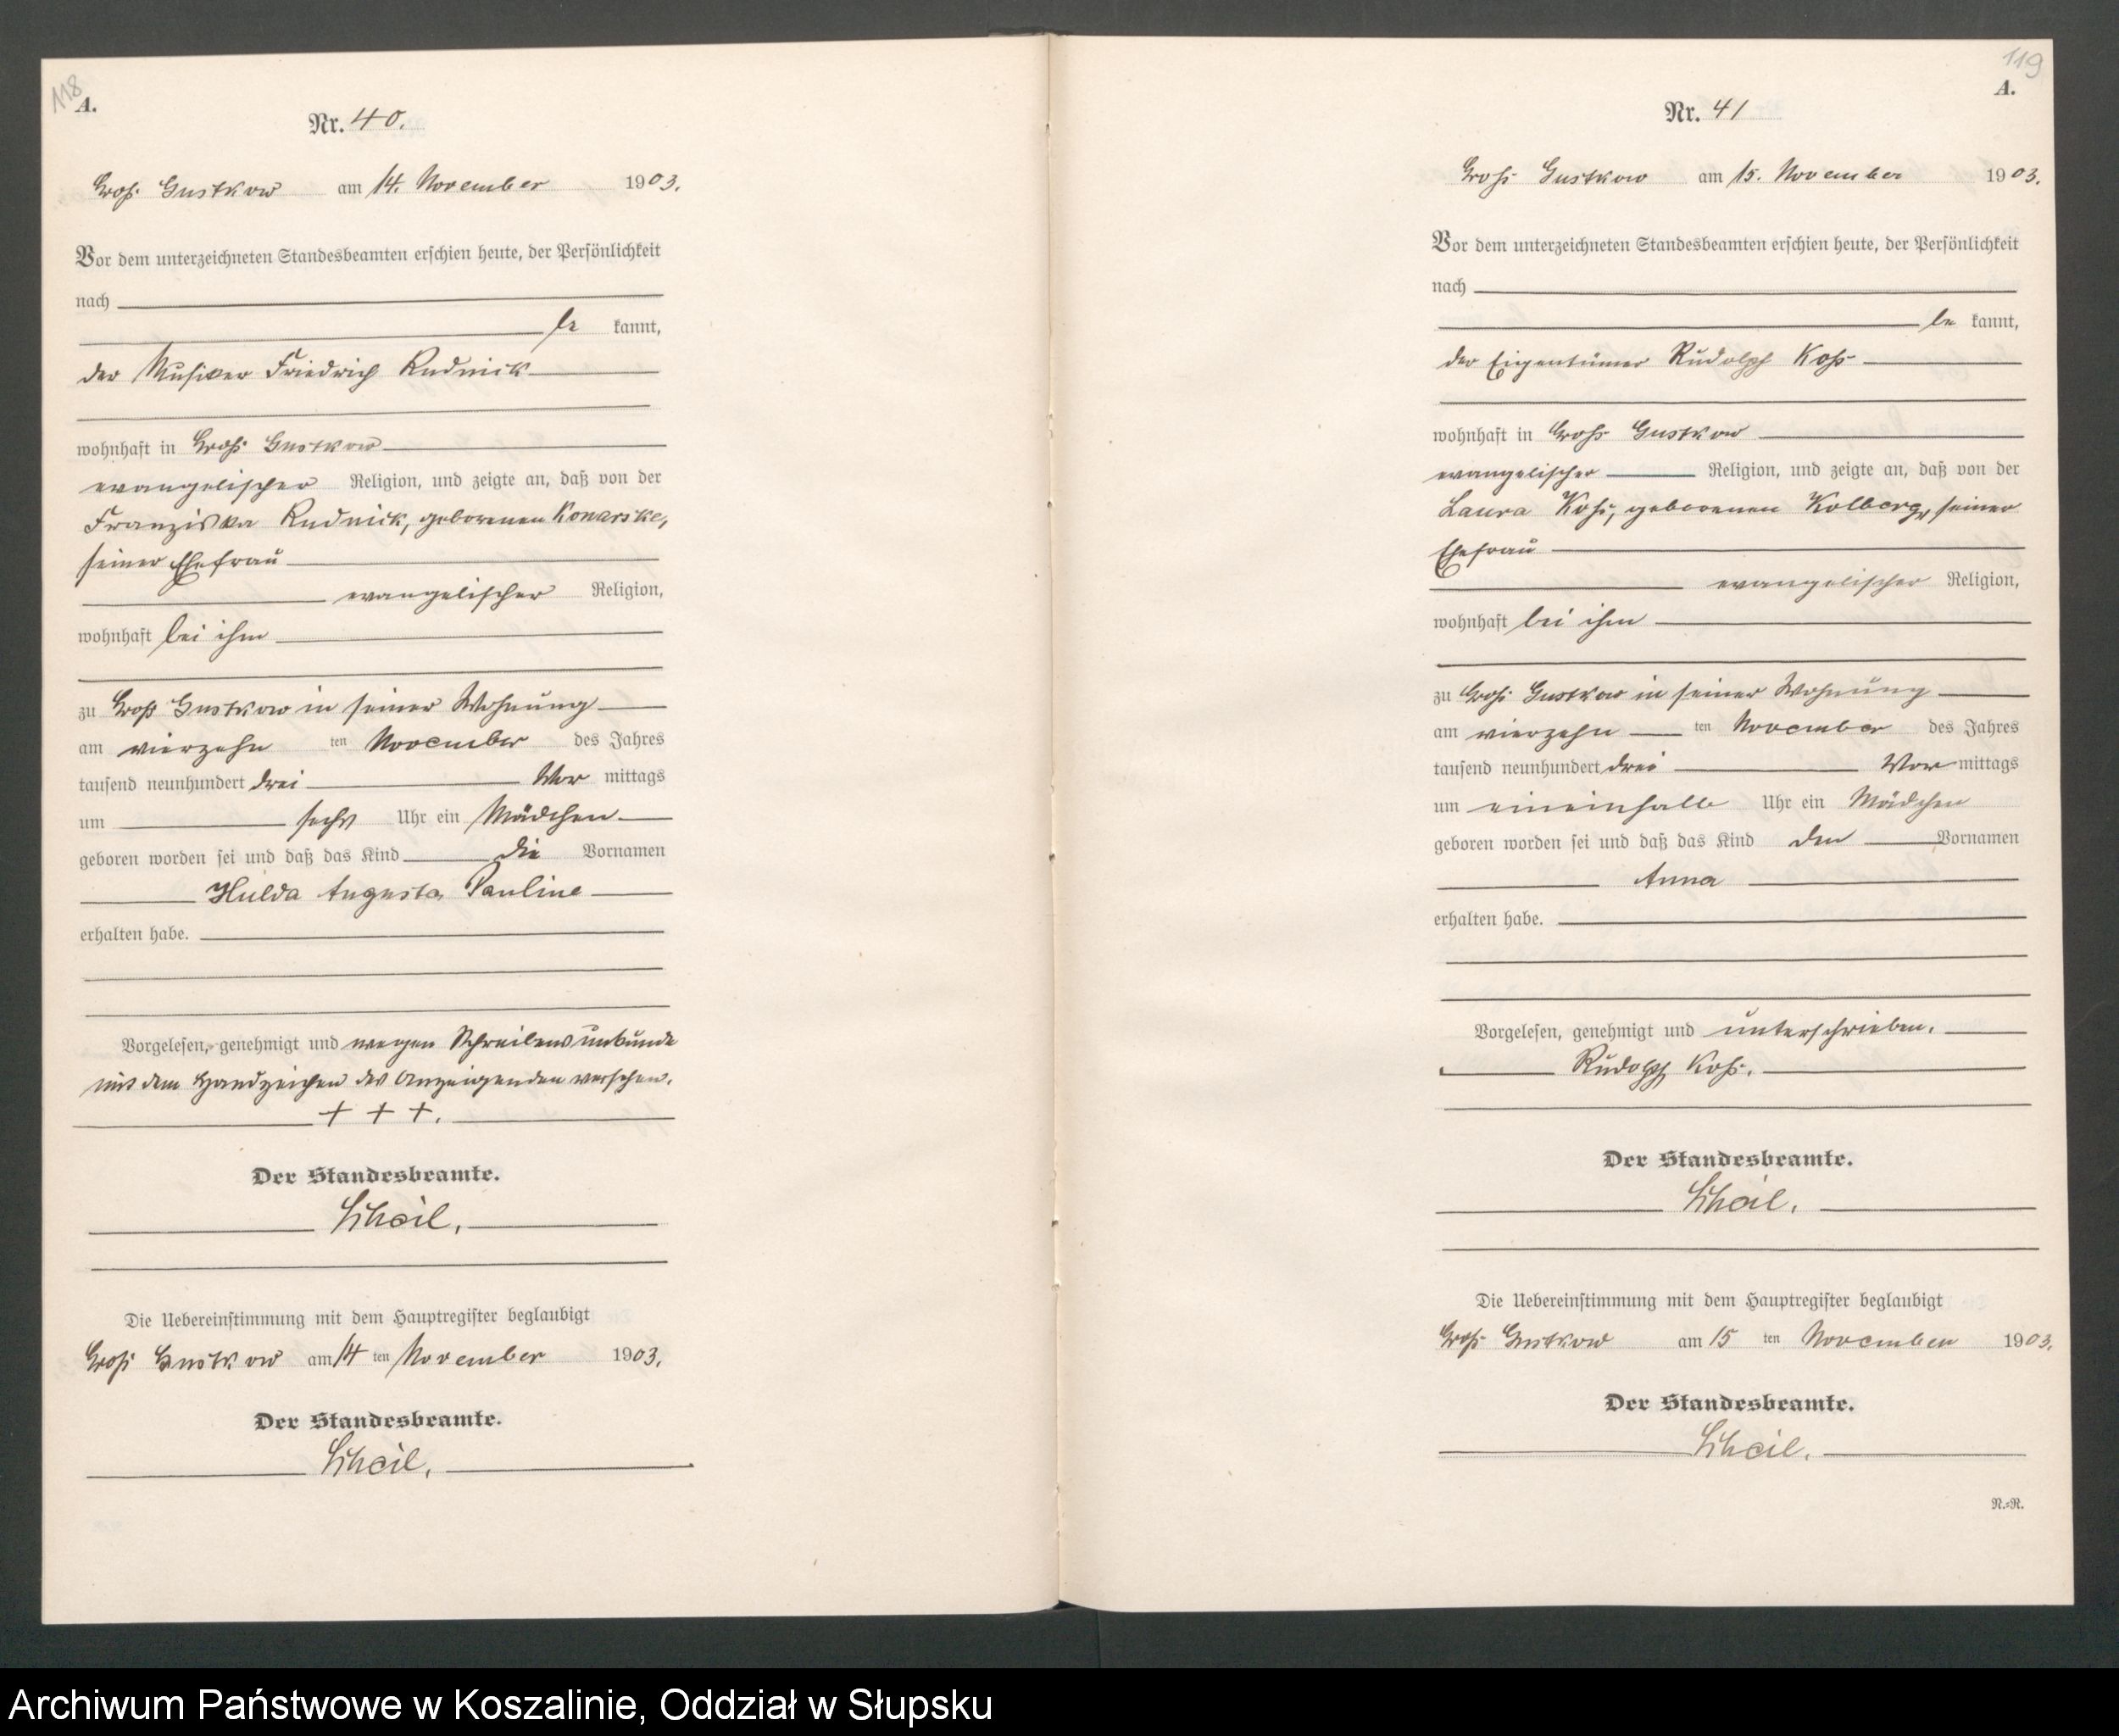 118
A.
Nr. 40.
Groß Gustkow am 14. November 1903.
Vor dem unterzeichneten Standesbeamten erschien heute, der Persönlichkeit
nach
be kannt,
der Musiker Friedrich Rudnick
wohnhaft in Groß Gustkow
evangelischer Religion, und zeigte an, daß von der
Franziska Rudnick, geborenen Konarske,
seiner Ehefrau
evangelischer Religion,
wohnhaft bei ihm
zu Groß Gustkow in seiner Wohnung
am vierzehn ten November des Jahres
tausend neunhundert drei Vor mittags
um sechs Uhr ein Mädchen
geboren worden sei und daß das Kind die Vornamen
Hulda Augusta Pauline
erhalten habe.
Vorgelesen, genehmigt und wegen Schreibensunkunde
mit dem Handzeichen des Anzeigenden versehen.
+ + +.
Der Standesbeamte.
Scheil.
Die Uebereinstimmung mit dem Hauptregister beglaubigt
Groß Gustkow am 14 ten November 1903.
Der Standesbeamte.
Scheil.
119
A.
Nr. 41
Groß Gustkow am 15. November 1903.
Vor dem unterzeichneten Standesbeamten erschien heute, der Persönlichkeit
nach
be kannt,
der Eigentümer Rudolph Koß
wohnhaft in Groß Gustkow
evangelischer Religion, und zeigte an, daß von der
Laura Koß, geborenen Kolberg, seiner
Ehefrau
evangelischer Religion,
wohnhaft bei ihm
zu Groß Gustkow in seiner Wohnung
am vierzehn ten November des Jahres
tausend neunhundert drei Vor mittags
um eineinhalb Uhr ein Mädchen
geboren worden sei und daß das Kind den Vornamen
Anna
erhalten habe.
Vorgelesen, genehmigt und unterschrieben.
Rudolph Koß.
Der Standesbeamte.
Scheil.
Die Uebereinstimmung mit dem Hauptregister beglaubigt
Groß Gustkow am 15 ten November 1903.
Der Standesbeamte.
Scheil.
N.=N.
Archiwum Państwowe w Koszalinie, Oddział w Słupsku